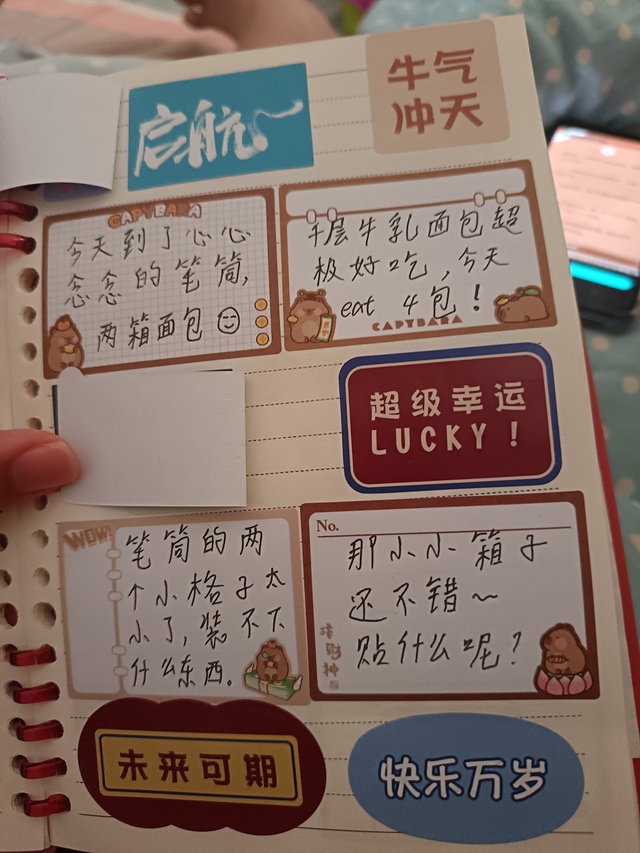 启航
牛气
冲天
CAPYBARA
今天到了心心
念念的笔筒,
两箱面包
千层牛乳面包超
极好吃,今天
eat 4包!
CAPYBARA
超级幸运
LUCKY!
WOW!
笔筒的两
个小格子太
小了,装不下
什么东西。
No.
那小小箱子
还不错~
贴什么呢?
未来可期
快乐万岁